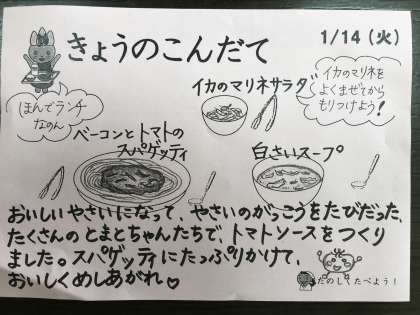 きょうのこんだて
1/14(火)
ほんでランチ
なのん
イカのマリネサラダ
イカのマリネを
よくまぜてから
もりつけよう!
ベーコンとトマトの
スパゲッティ
白さいスープ
おいしいやさいになって、やさいのがっこうをたびだった、
たくさんのとまとちゃんたちで、トマトソースをつくり
ました。スパゲッティにたっぷりかけて、
おいしくめしあがれ♡
たのしくたべよう!